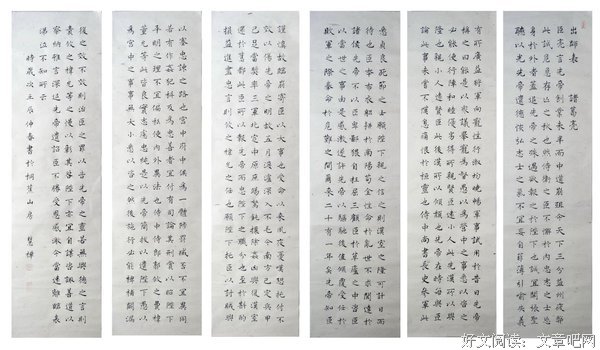 出師表 諸葛亮
臣亮言先帝創業未半而中道崩殂今天下三分益州疲弊
此誠危急存亡之秋也然侍衛之臣不懈於內忠志之士忘
身於外者蓋追先帝之殊遇欲報之於陛下也誠宜開張聖
聽以光先帝遺德恢弘志士之氣不宜妄自菲薄引喻失義
有所廣益將軍向寵性行淑均曉暢軍事試用於昔日先帝
稱之曰能是以眾議舉寵為督愚以為營中之事悉以咨之
必能使行陣和睦優劣得所親賢臣遠小人此先漢所以興
隆也親小人遠賢臣此後漢所以傾頹也先帝在時每與臣
論此事未嘗不歎息痛恨於桓靈也侍中尚書長史參軍此
悉貞良死節之士願陛下親之信之則漢室之隆可計日而
待也臣本布衣躬耕於南陽苟全性命於亂世不求聞達於
諸侯先帝不以臣卑鄙猥自枉屈三顧臣於草廬之中咨臣
以當世之事由是感激遂許先帝以驅馳後值傾覆受任於
敗軍之際奉命於危難之間爾來二十有一年矣先帝知臣
謹慎故臨崩寄臣以大事也受命以來夙夜憂嘆恐託付不
效以傷先帝之明故五月渡瀘深入不毛今南方已定兵甲
已足當獎率三軍北定中原庶竭駑鈍攘除奸凶興復漢室
還於舊都此臣所以報先帝而忠陛下之職分也至於斟酌
損益進盡忠言則攸之禕允之任也願陛下託臣以討賊興
以塞忠諫之路也宮中府中俱為一體陟罰臧否不宜異同
若有作奸犯科及為忠善者宜付有司論其刑賞以昭陛下
平明之理不宜偏私使內外異法也侍中侍郎郭攸之費禕
董允等此皆良實志慮忠純是以先帝簡拔以遺陛下愚以
為宮中之事事無大小悉以咨之然後施行必能裨補闕漏
復之效不效則治臣之罪以告先帝之靈若無興德之言則
責攸之禕允等之慢以彰其咎陛下亦宜自謀以咨諏善道以
察納雅言深追先帝遺詔臣不勝受恩感激今當遠離臨表
涕泣不知所云
時歲次壬辰仲春書於桐 山房 慧樺
好文阅读：文章吧网